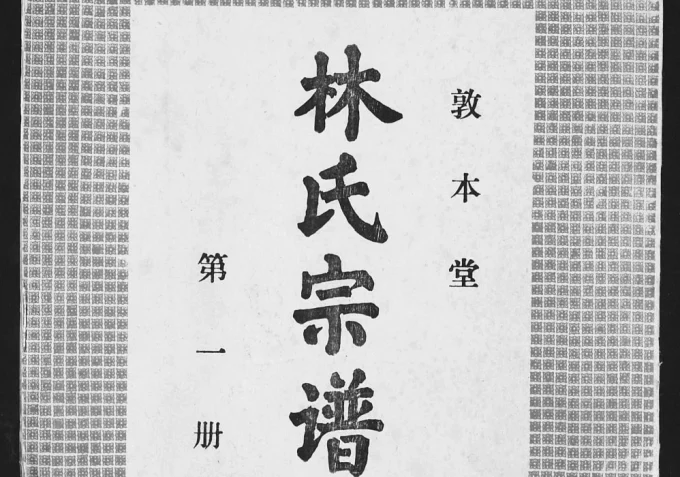 敦本堂
林氏宗谱
第一册